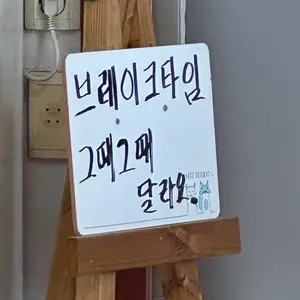 브레이크타임
그때그때
달라요.